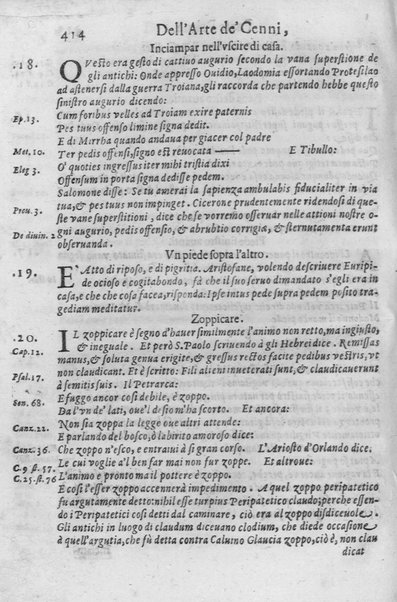 414 Dell'Arte de' Cenni,
Inciampar nell'vscire di casa.
.18. QVesto era gesto di cattiuo augurio secondo la vana superstione de
gli antichi: Onde appresso Ouidio, Laodomia essortando Protesilao
ad astenersi dalla guerra Troiana, gli raccorda che partendo hebbe questo
sinistro augurio dicendo:
Ep. 13. Cum foribus velles ad Troiam exire paternis
Pes tuus offenso limine signa dedit.
E di Mirrha quando andaua per giacer col padre
Met. 10. Ter pedis offensi, signo est reuocata —— E Tibullo:
Eleg 3 O' quoties ingressus iter mihi tristia dixi
Offensum in porta signa dedisse pedem.
Salomone disse: Se tu amerai la sapienza ambulabis fiducialiter in via
Prou. 3. tua, & pes tuus non impinget. Cicerone prudentemente ridendosi di que-
ste vane superstitioni, dice che se vorremo osseruar nelle attioni nostre o-
De diuin. 2 gni augurio, pedis offensio, & abrubtio corrigia, & sternutamenta erunt
obseruanda.
Vn piede sopra l'altro.
.19. E' Atto di riposo, e di pigritia. Aristofane, volendo descriuere Euripi-
de ocioso e cogitabondo, fà che il suo seruo dimandato s'egli era in
casa, e che che cosa facea, risponda: Ipse intus pede supra pedem posito tra-
gediam meditatur.
Zoppicare.
.20. IL zoppicare è segno d'hauer similmente l'animo non retto, ma ingiusto,
Cap. 12. & ineguale. Et però S. Paolo scriuendo à gli Hebrei dice. Remissas
manus, & soluta genua erigite, & gressus rectos facite pedibus vestris, vt
Psal. 17. non claudicant. Et è scritto: Fili alieni inueterati sunt, & claudicauerunt
à semitis suis. Il Petrarca:
Son. 68. E fuggo ancor così debile, è zoppo.
Da l'vn de' lati, oue'l desio m'ha scorto. Et ancora:
Canz. 22. Non sia zoppa la legge oue altri attende:
E parlando del bosco, ò labirito amoroso dice:
Canz. 36. Che zoppo n'esco, e entrai à sì gran corso. L'Ariosto d'Orlando dice.
C. 9 st. 57. Le cui voglie al ben far mai non fur zoppe. Et altroue:
C. 25. st. 76 L'animo e pronto ma il potere è zoppo.
E così l'esser zoppo accennerà impedimento. A quel zoppo peripatetico
fu argutamente detto nihil esse turpius Peripatetico claudo; perche essen-
do i Peripatetici così detti dal caminare, ciò era al zoppo disdiceuole.
Gli antichi in luogo di claudum diceuano clodium, che diede occasione
à quell'argutia, che fù detta contra Caluino Glaucia zoppo, ciò è, non clau
dicat